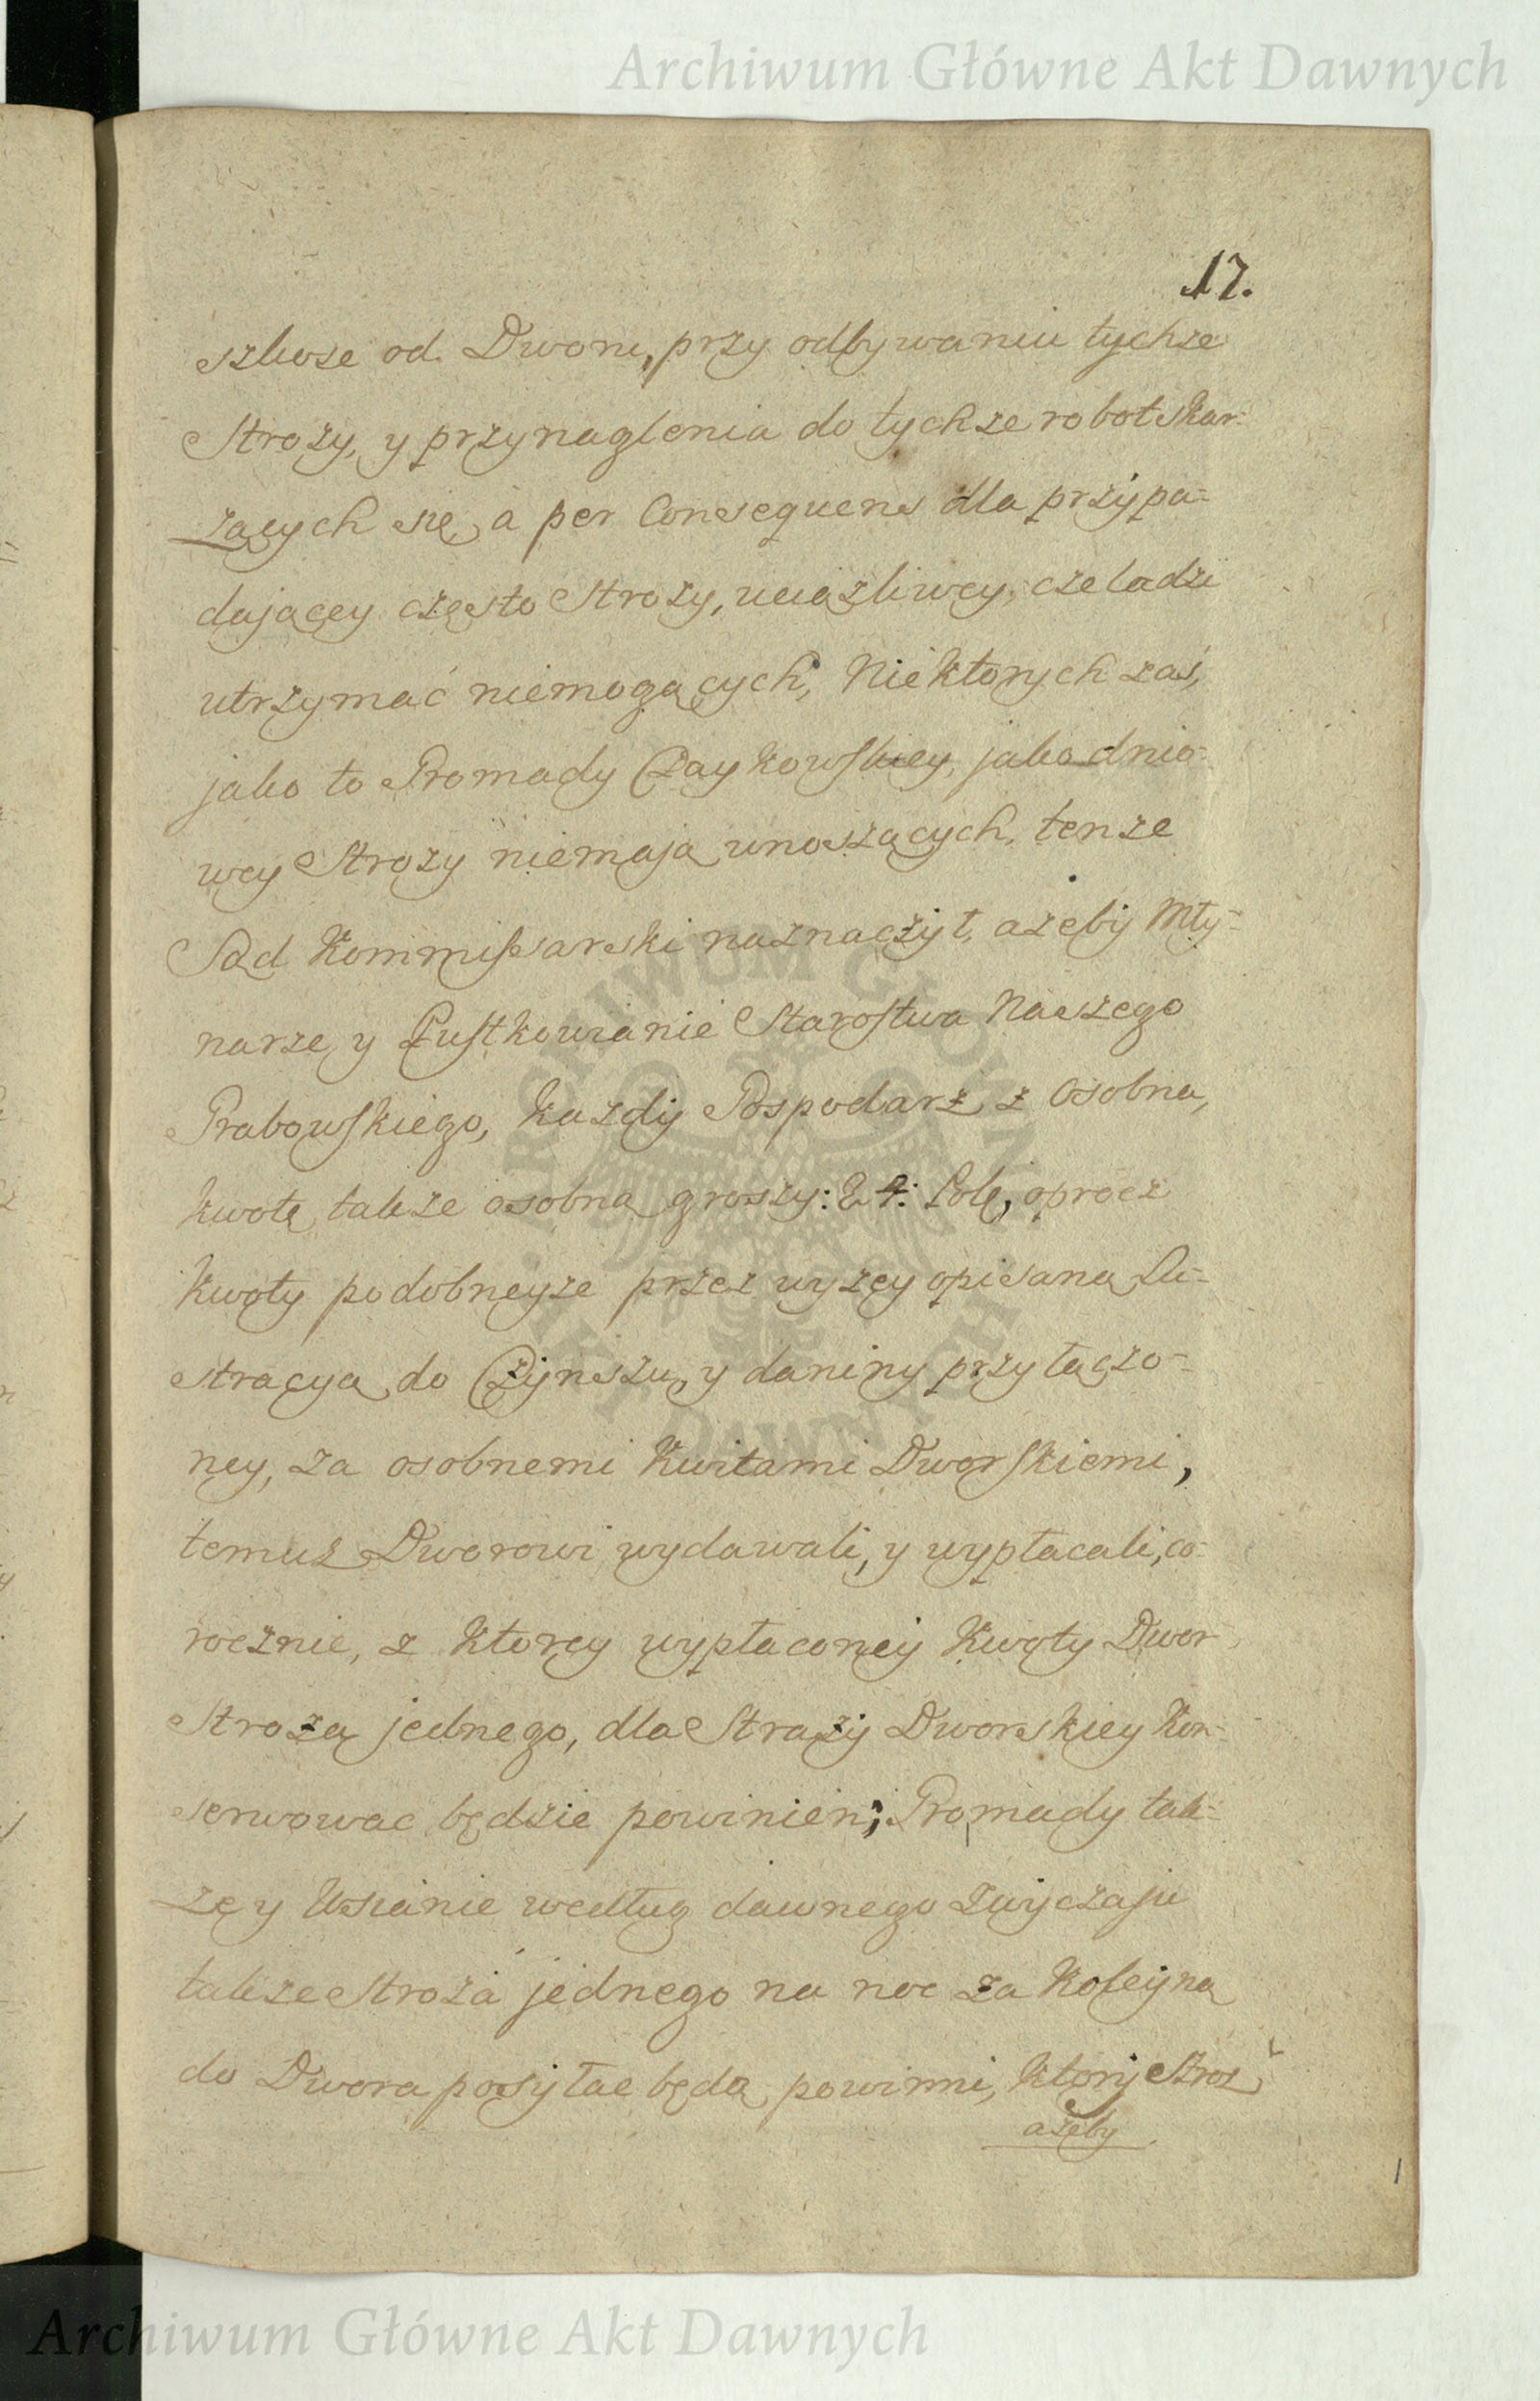 Archiwum Główne Akt Dawnych
17.
szkose od Dworu, przy odbywaniu tychze
Stroży, y przynaglenia do tychze robot skar-
żących się, a per Consequens dla przypa-
dającey często Stroży, uciążliwey, czeladzi
utrzymać niemogących, Niektorych zaś,
jako to Gromady Czaykowskiey, jako dnio-
wey Stroży niemają wnoszących, tenże
Sąd Kommissarski naznaczył, ażeby Mły-
narze, y Pustkowianie Starostwa Naszego
Grabowskiego, każdy Gospodarz z osobna,
kwotę także osobną groszy: 24: Pol:, oprocz
Kwoty podobneyże przez wyżey opisaną Lu-
stracyą do Czynszu, y daniny przyłączo-
ney, za osobnemi Kwitami Dworskiemi,
temuż Dworowi wydawali, y wypłacali, co-
rocznie, z ktorey wypłaconey Kwoty Dwor
Stroża jednego, dla Straży Dworskiey kon-
serwowac będzie powinien; Gromady tak-
że y Wsianie według dawnego Zwyczaju
także Stroża jednego na noc za Koleyną
do Dwora posyłac będą powinni, ktory Stroż
ażeby
ARCHIWUM GŁÓWNE
AKT DAWNYCH
Archiwum Główne Akt Dawnych